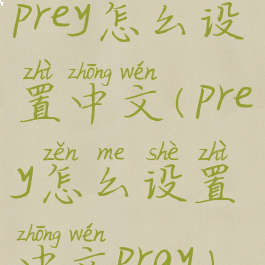 prey怎么设
zhì zhōng wén
置中文(pre
zěn me shè zhì
y怎么设置
zhōng wén
中文pray)